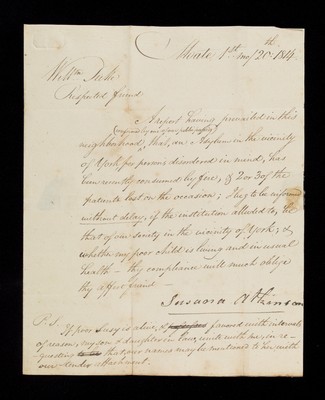 Moate 1st mo/ 20th 1814
Willm Tuke
Respected friend
A report having prevailed in this
(confirmed by one of our public papers)
neighborhood, that, an Asylum in the vicinity
of York for persons disordered in mind, has
been recently consumed by fire, & 2 or 3 of the
patients lost on the occasion; I beg to be informed
without delay, if the institution alluded to, be
that of our society in the vicinity of York; &
whether my poor child is living and in usual
health – thy compliance will much oblige
thy affect friend –
Susanna
P.S.
If poor Susy is alive, & favored with intervals
of reason, my son & daughter in law, unite with me, in re
questing that our names may be mentioned to her with
own tender attachment.